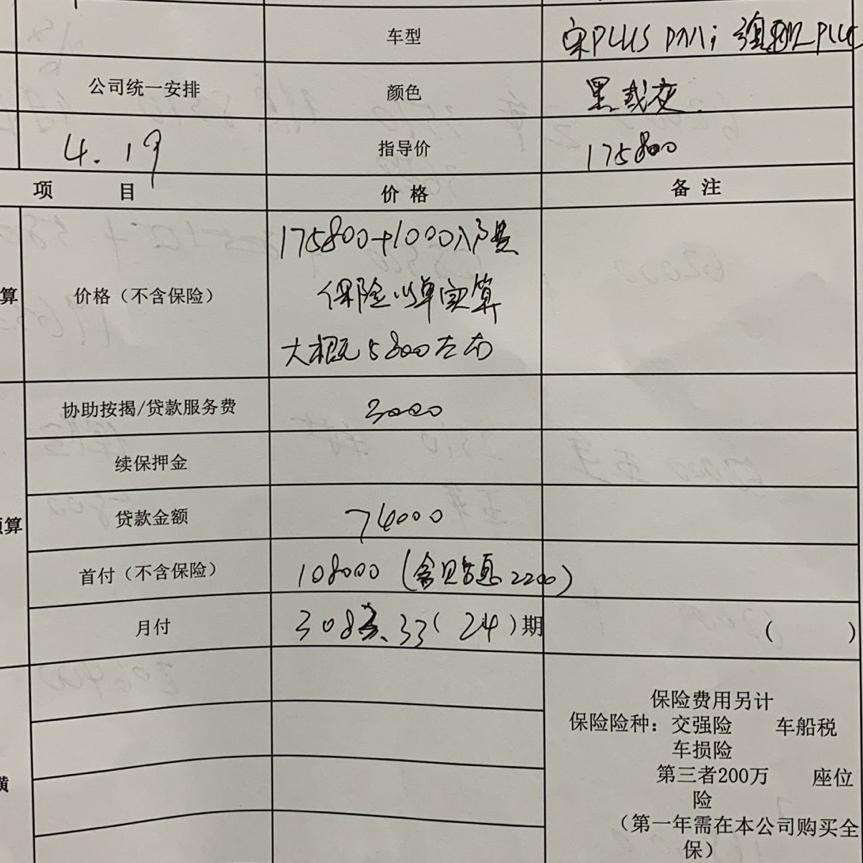 车型 宋PLUS DMi 旗舰PLUS
公司统一安排 颜色 黑或灰
4.19 指导价 175800
项 目 价 格 备 注
算 价格（不含保险） 175800+1000入户是
保险以单实算
大概5800左右
协助按揭/贷款服务费 3000
续保押金
算 贷款金额 74000
首付（不含保险） 108000（含贴息2200）
月付 3083.33（24）期 （ ）
保险费用另计
保险险种：交强险 车船税
车损险
第三者200万 座位
险
（第一年需在本公司购买全
保）